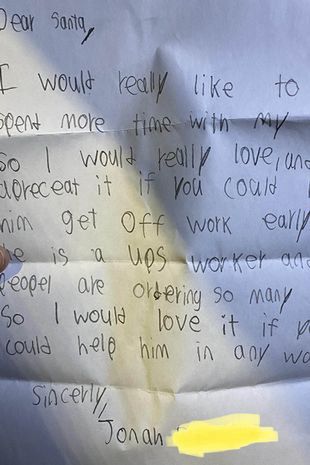 Dear Santa,
I would really like to
spend more time with my
so I would really love, and
apreceat it if you could
him get off work early
he is a ups worker and
peopel are ordering so many
so I would love it if
could help him in any
Sincerly,
Jonah